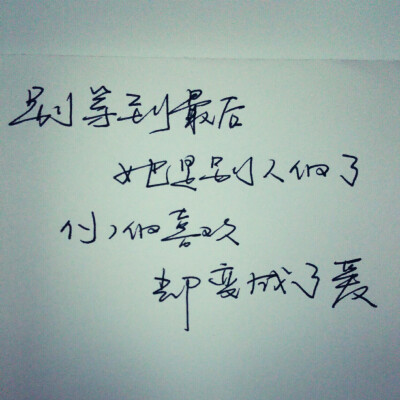 别等到最后
她是别人的了
你的喜欢
却变成了爱